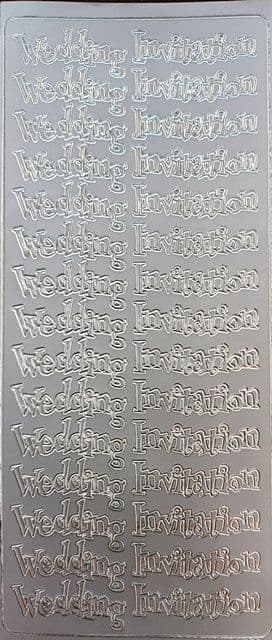 Wedding Invitation
Wedding Invitation
Wedding Invitation
Wedding Invitation
Wedding Invitation
Wedding Invitation
Wedding Invitation
Wedding Invitation
Wedding Invitation
Wedding Invitation
Wedding Invitation
Wedding Invitation
Wedding Invitation
Wedding Invitation
Wedding Invitation